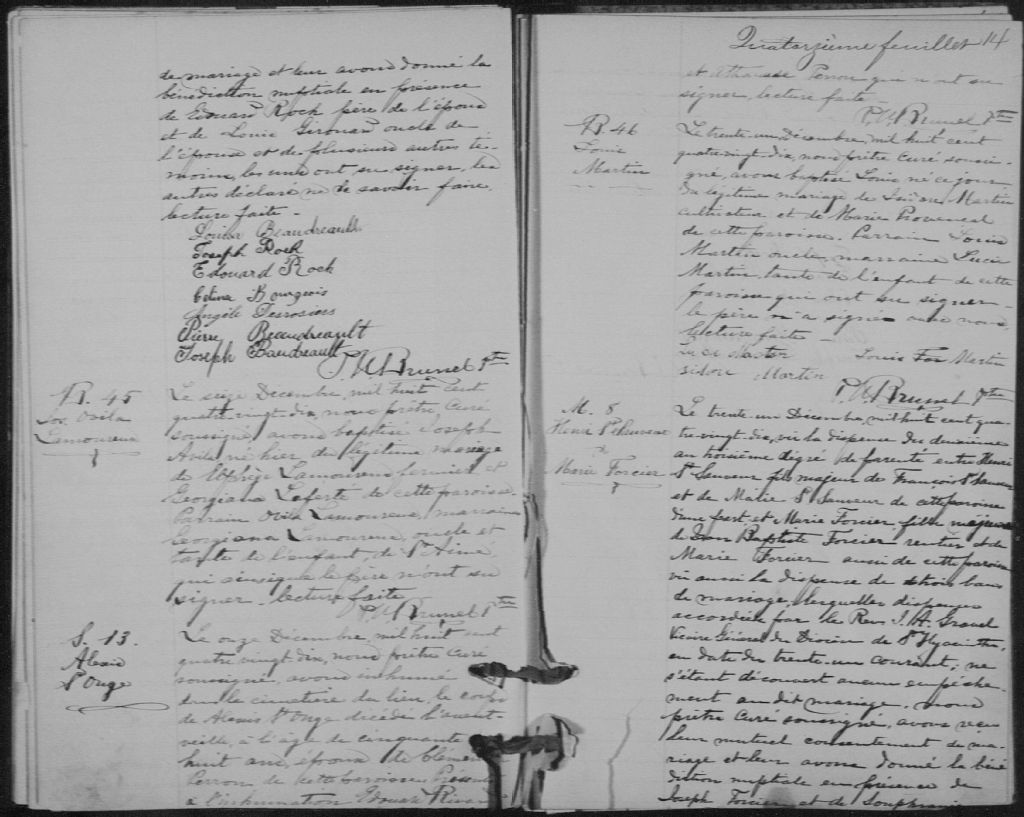 de mariage et leur avons donné la
bénédiction nuptiale en présence
de Edouard Rock père de l'époux
et de Louis Girouard oncle de
l'épouse et de plusieurs autres té-
moins, les uns ont su signer, les
autres déclaré ne le savoir faire,
lecture faite -
Louisa Beaudreault
Joseph Rock
Edouard Rock
Celina Bourgeois
Angèle Desrosiers
Pierre Beaudreault
Joseph Baudreault
Brunel Ptre
B. 45
Jos. Ovila
Lamoureux
Le seize Décembre, mil huit cent
quatre vingt dix, nous prêtre, Curé
soussigné, avons baptisé Joseph
Avila né hier du légitime mariage
de Elphège Lamoureux fermier et
Georgiana Laferté de cette paroisse.
Parrain Ovila Lamoureux, marraine
Georgiana Lamoureux, oncle et
tante de l'enfant de St Aimé
qui ainsi que le père n'ont su
signer - lecture faite
Brunel Ptre
S. 13.
Alexis
St Onge
Le onze Décembre, mil huit cent
quatre vingt dix, nous prêtre Curé
soussigné, avons inhumé
dans le cimetière du lieu, le corps
de Alexis St Onge décédé l'avant
veille, à l'âge de cinquante
huit ans, époux de Clémence
Perron de cette paroisse. Présents
à l'inhumation Edouard Rivard
Quatorzième feuillet 14
et Athanase Perron qui n'ont su
signer, lecture faite
Brunel Ptre
B. 46
Louis
Martin
Le trente un Décembre, mil huit cent
quatre vingt dix, nous prêtre curé soussi-
gné, avons baptisé Louis né ce jour
du légitime mariage de Isidore Martin
cultivateur et de Marie Provencal
de cette paroisse. Parrain Louis
Martin oncle, marraine Lucie
Martin, tante de l'enfant de cette
paroisse qui ont su signer -
le père n'a signé avec nous,
lecture faite -
Martin Louis Martin
sidore Martin
Brunel Ptre
M. 8
Henri St Sauveur
&
Marie Forcier
Le trente un Décembre, mil huit cent qua-
tre vingt dix, vu la dispense du deuxième
au troisième dégré de parenté entre Henri
St Sauveur fils majeur de François St Sauveur
et de Marie St Sauveur de cette paroisse
d'une part, et Marie Forcier, fille majeure
de Jean Baptiste Forcier rentier et de
Marie Forcier aussi de cette paroisse
vu aussi la dispense de trois bans
de mariage, lesquelles dispenses
accordées par le Rev. J. A. Gravel
Vicaire Général du Diocèse de St Hyacinthe,
en date du trente-un courant; ne
s'étant découvert aucun empêche-
ment au dit mariage, nous
prêtre curé soussigné, avons reçu
leur mutuel consentement de ma-
riage et leur avons donné la béné
diction nuptiale en présence de
Joseph Forcier et de